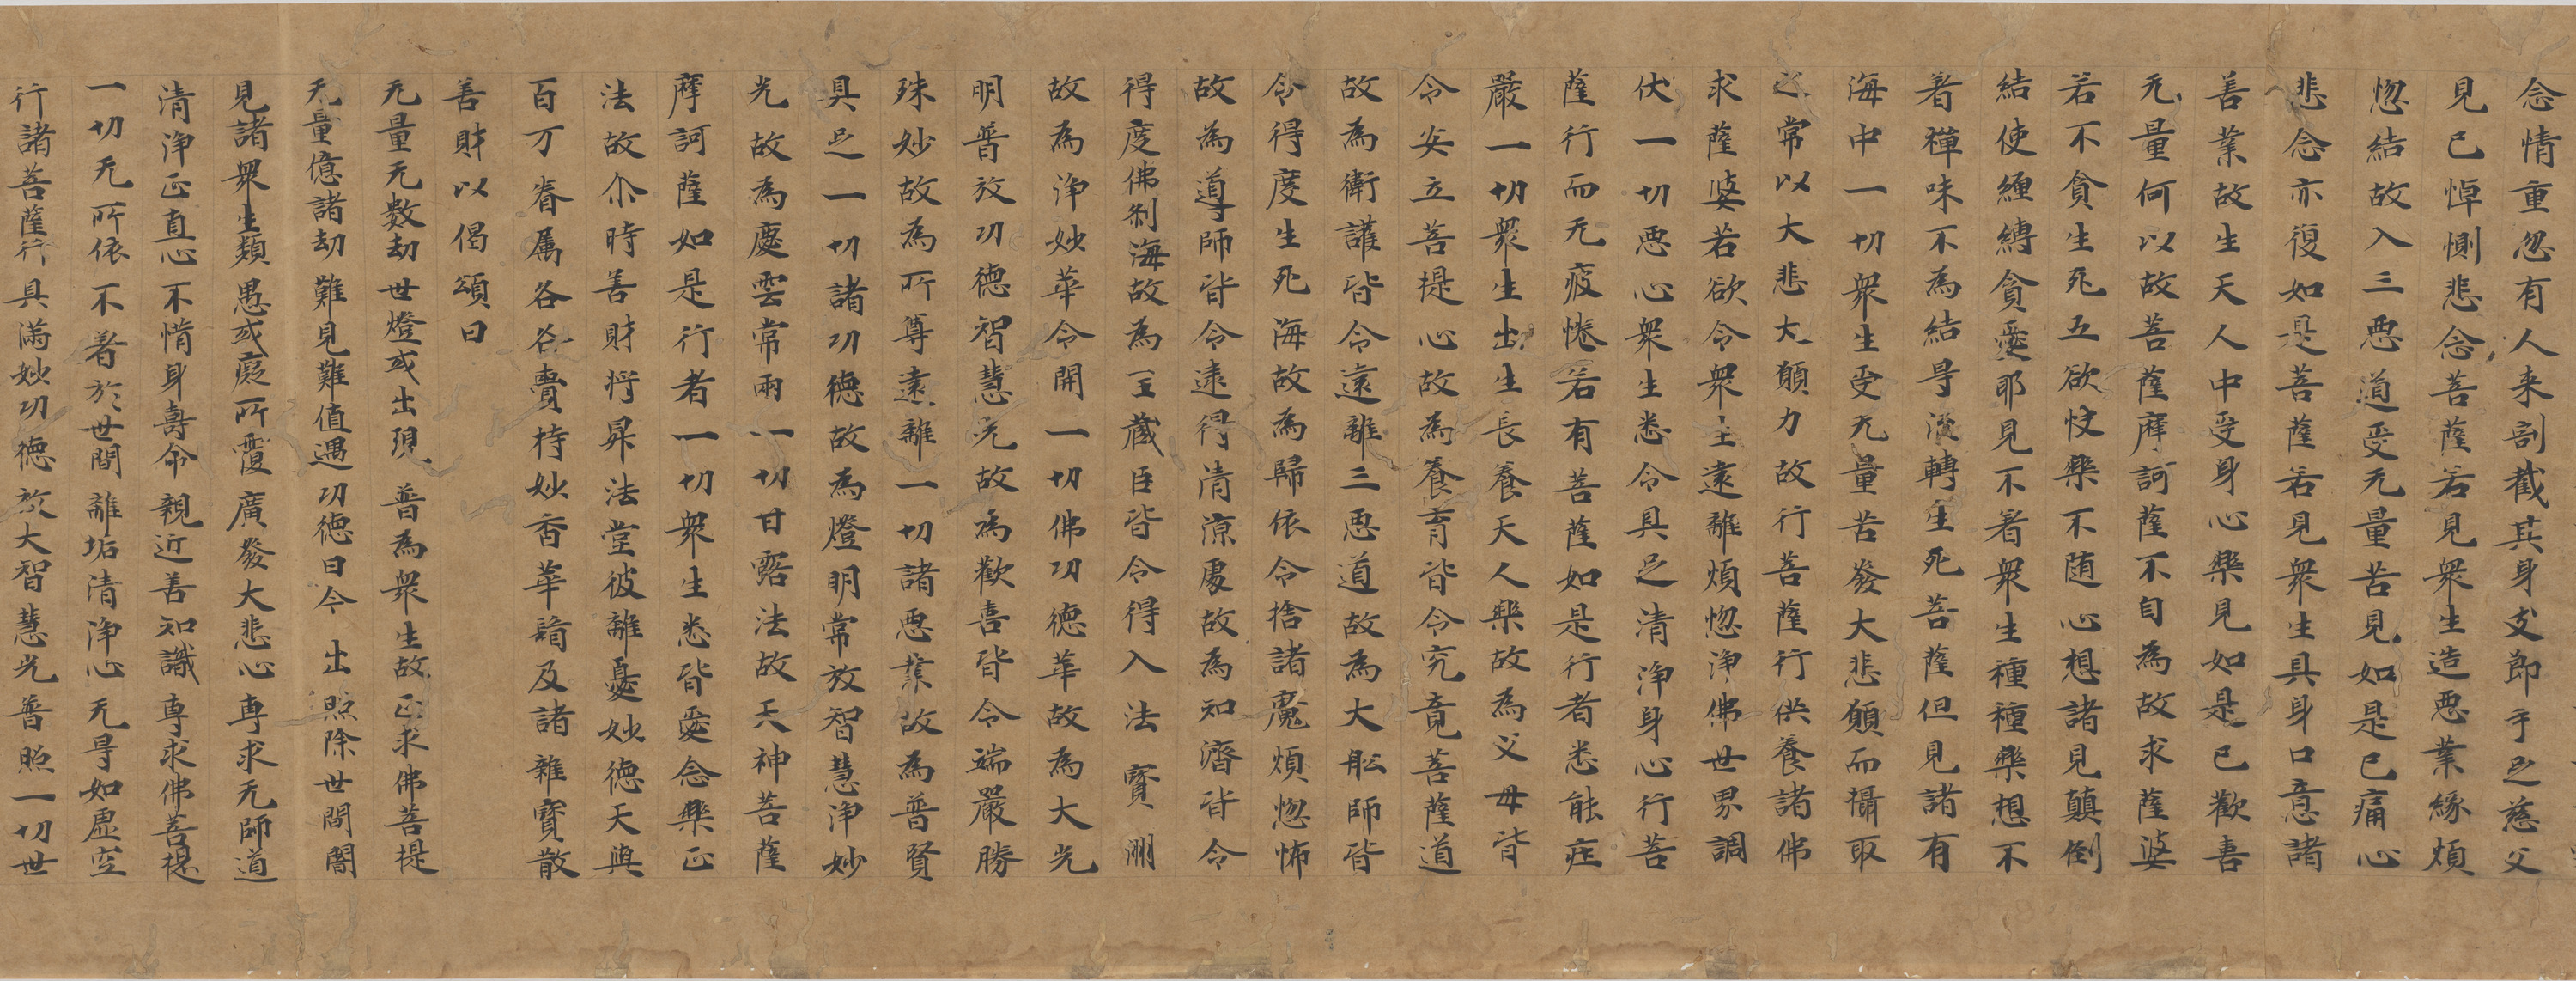 念情重忽有人来割截其身支即手足慈父
見已悼惻悲念菩薩若見衆生造惡業緣煩
惚結故入三惡道受无量苦見如是已痛心
悲念亦復如是菩薩若見衆生具身口意諸
善業故生天人中受身心樂見如是已歡喜
无量何以故菩薩摩訶薩不自為故求薩婆
若不貪生死五欲快樂不随心想諸見顛倒
結使纏縛貪愛耶見不著衆生種種樂想不
著禪味不為結㝵退轉生死菩薩但見諸有
海中一切衆生受无量苦發大悲願而攝取
之常以大悲大願力故行菩薩行供養諸佛
求薩婆若欲令衆生遠離煩惚淨佛世界調
伏一切惡心衆生悉令具足清淨身心行菩
薩行而无疲惓若有菩薩如是行者悉能庄
嚴一切衆生出生長養天人樂故為父母皆
令安立菩提心故為養育皆令究竟菩薩道
故為衛護皆令遠離三惡道故為大舩師皆
令得度生死海故為歸依令捨諸魔煩惚怖
故為導師皆令逮得清涼處故為知濟皆令
得度佛刹海故為主藏臣皆令得入法寶洲
故為淨妙華令開一切佛功德華故為大光
明普放功德智慧光故為歡喜皆令端嚴勝
殊妙故為所尊遠離一切諸惡業故為普賢
具足一切諸功德故為燈明常放智慧淨妙
光故為慶雲常雨一切甘露法故天神菩薩
摩訶薩如是行者一切衆生悉皆愛念樂正
法故尒時善財将昇法堂彼離憂妙德天與
百万眷属各各賷持妙香華鬘及諸雜寶散
善財以偈頌曰
无量无數劫世燈或出現普為衆生故正求佛菩提
无量億諸劫難見難值遇功德日今出照除世間闇
見諸衆生類愚或癡所覆廣發大悲心専求无師道
清淨正直心不惜身壽命親近善知識専求佛菩提
一切无所依不著於世間離垢清淨心无㝵如虚空
行諸菩薩行具满妙功德放大智慧光普照一切世